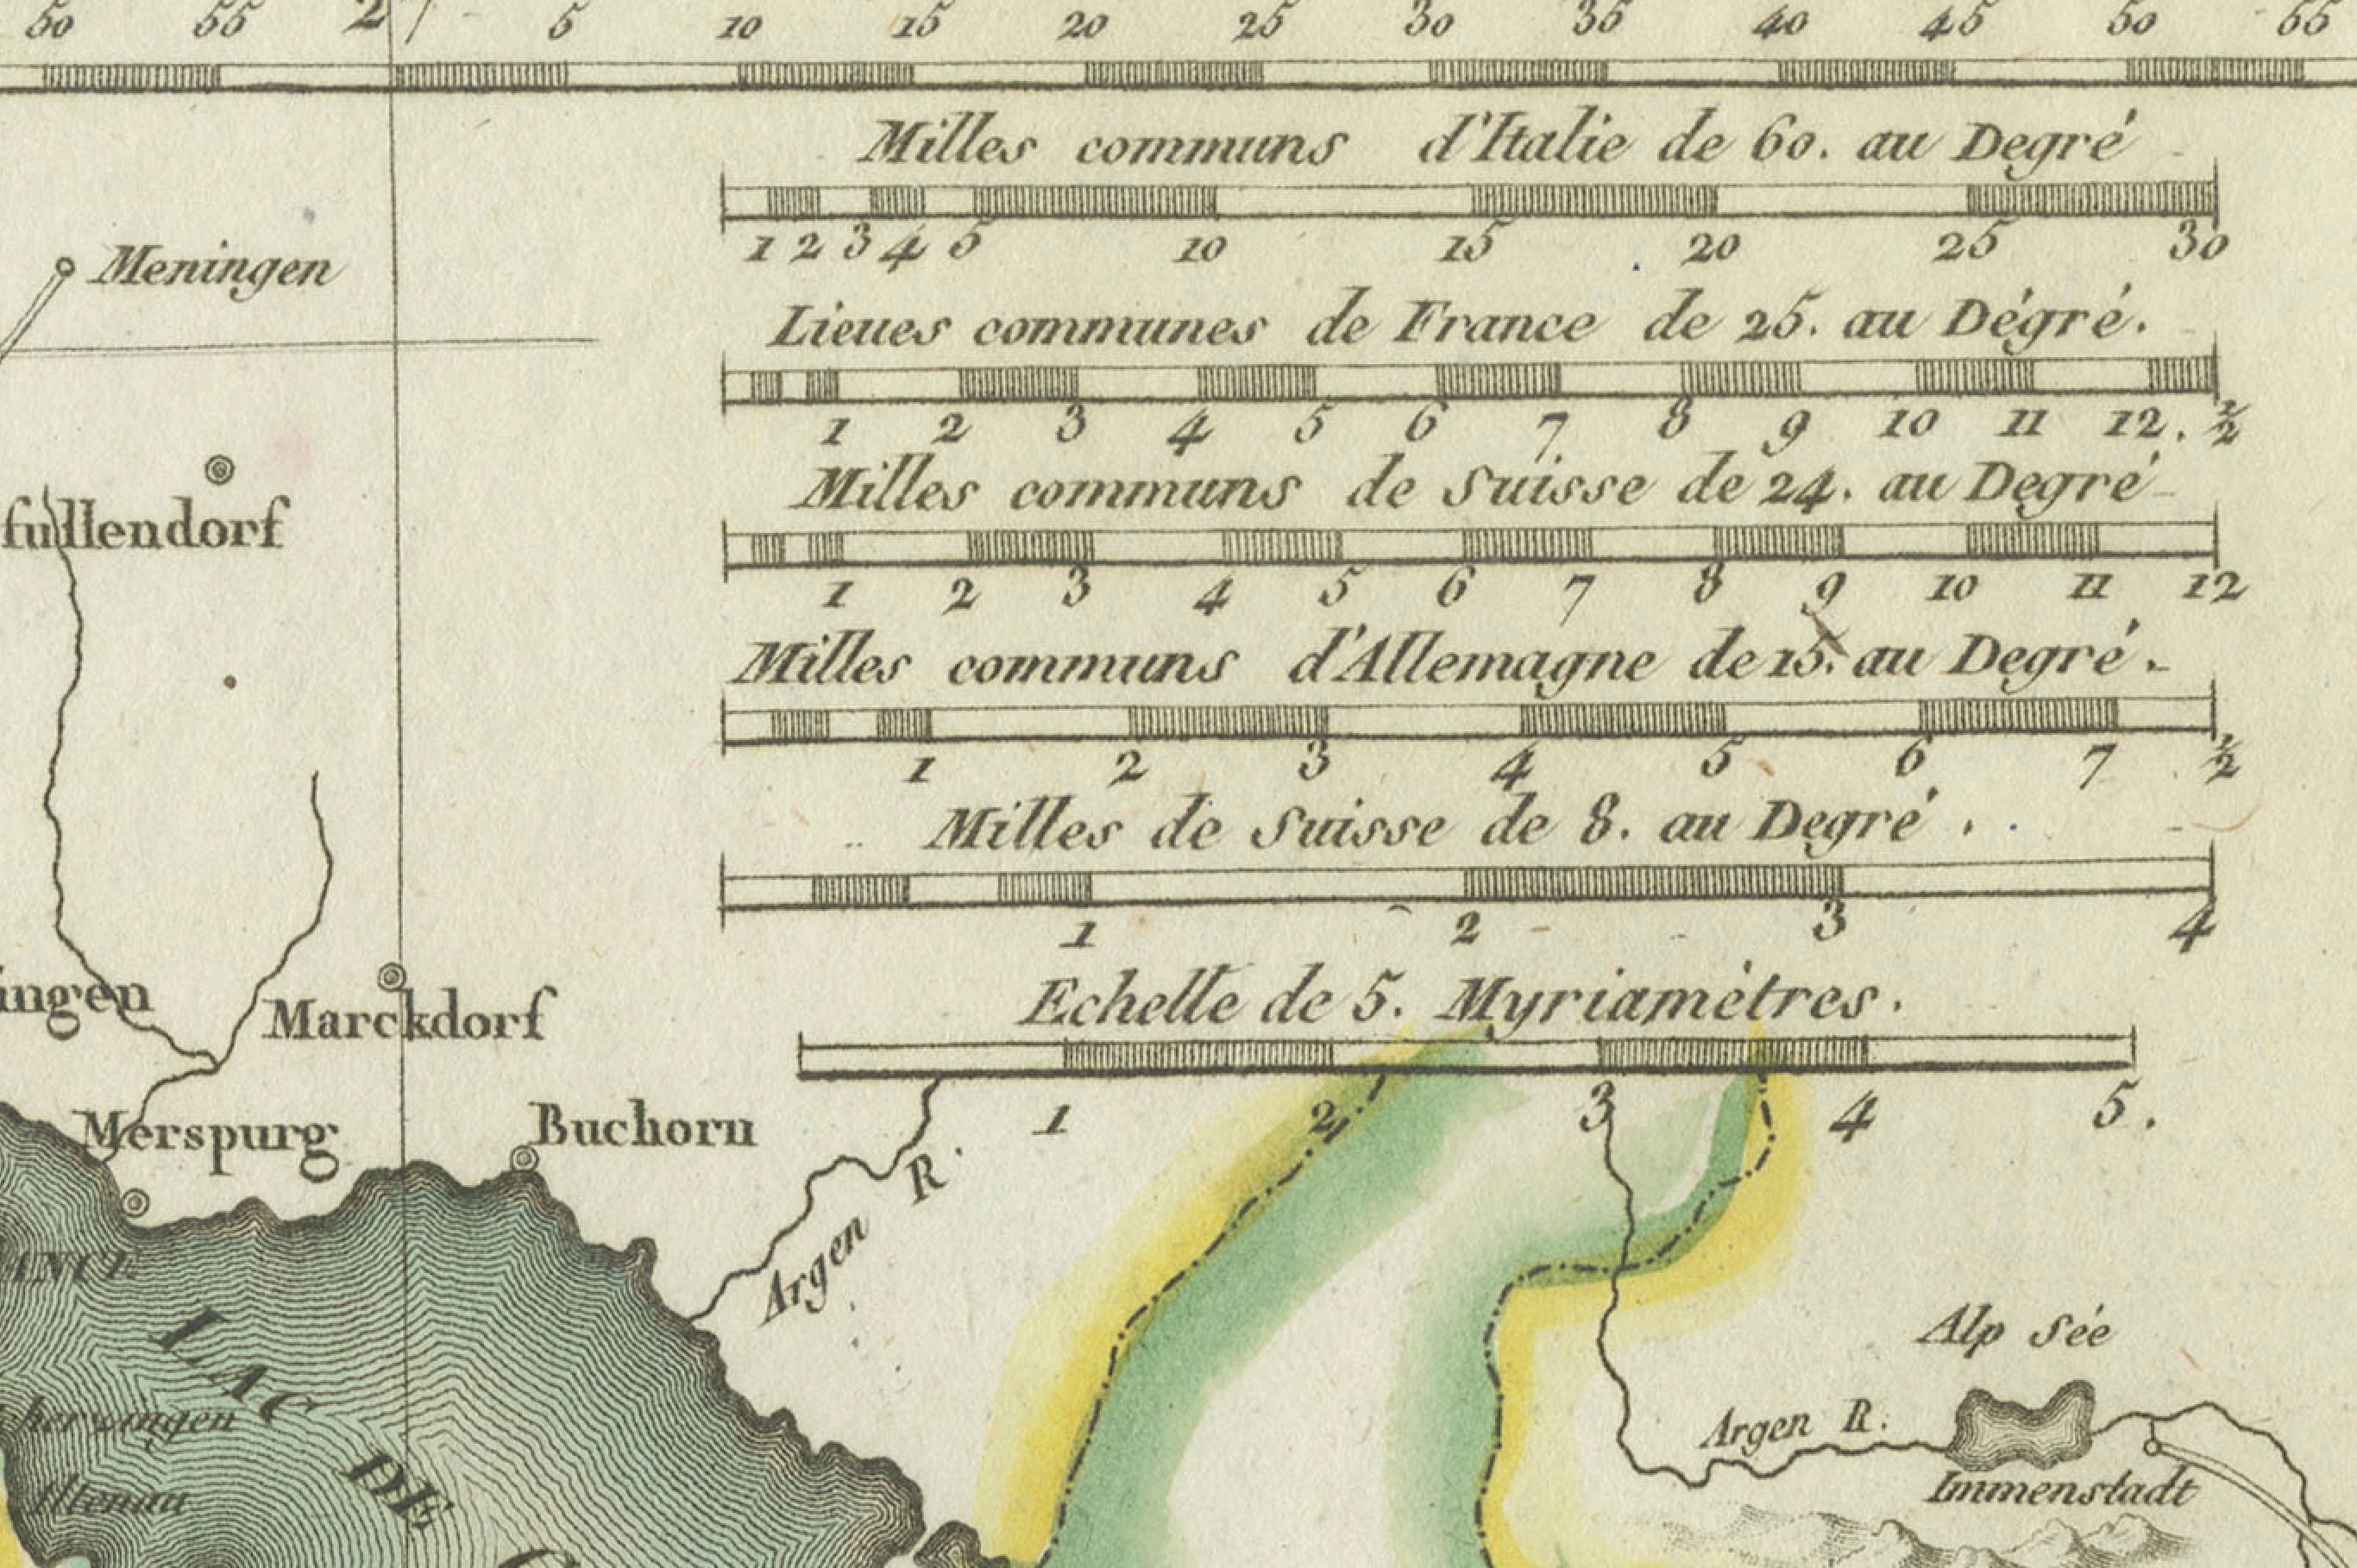 50 55 27 5 10 15 20 25 30 35 40 45 50 55
Milles communs d'Italie de 60. au Degré
1 2 3 4 5 10 15 20 25 30
Meningen
Lieues communes de France de 25. au Dégré.
1 2 3 4 5 6 7 8 9 10 11 12. ½
Milles communs de Suisse de 24. au Degré
fullendorf
1 2 3 4 5 6 7 8 9 10 11 12
Milles communs d'Allemagne de 15. au Degré.
1 2 3 4 5 6 7 ½
Milles de Suisse de 8. au Degré.
1 2 3 4
Echelle de 5. Myriamètres.
ingen
Marckdorf
1 2 3 4 5.
Merspurg
Buchorn
Argen R.
LAC DE
Alp Sée
Argen R.
Immenstadt